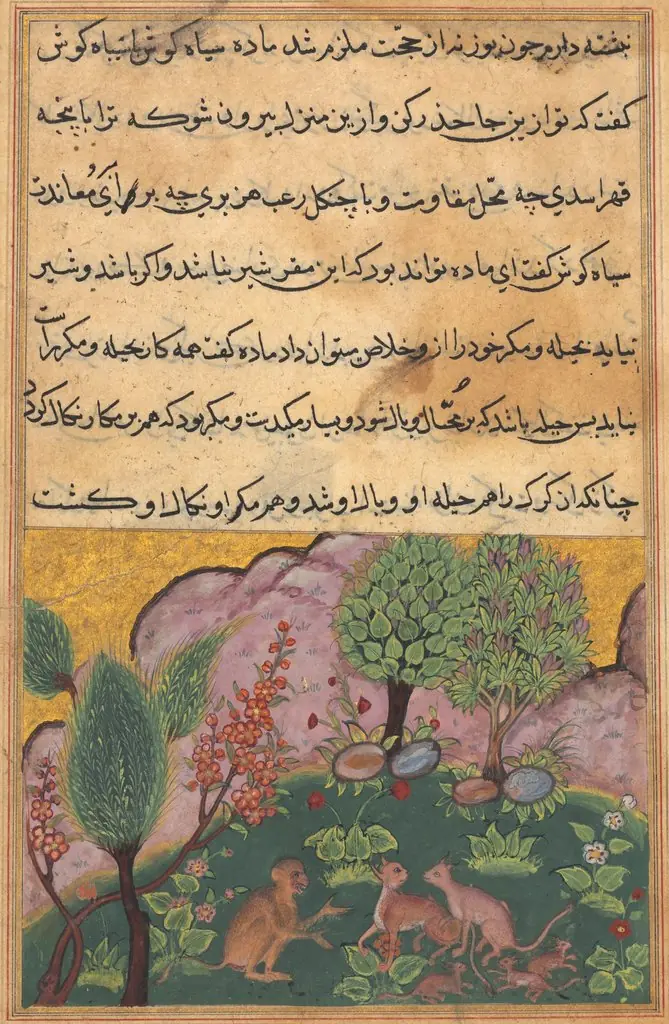 نبشته دارم چون بوزنه از حجّت ملزم شد ماده سیاه کوش باسیاه کوش
کفت که تو ازین جا حذر کن و ازین منزل بیرون شو که ترا با پنجه
قهر اسدی چه محلّ مقاومت و با چنکل رعب هزبری چه برای معاندت
سیاه کوش کفت ای ماده تواند بود که این مقر شیر نباشد و اکر باشد و شیر
بیاید بحیله و مکر خود را ازو خلاص میتوان داد ماده کفت همه کار بحیله و مکر راست
نیاید بس حیله باشد که بر محُّتال وبال شود و بسیار مکیدت و مکر بود که هم بر مکار نکال کردد
چنانکه ان کرک را هم حیله او وبال او شد و هم مکر او نکال او کشت